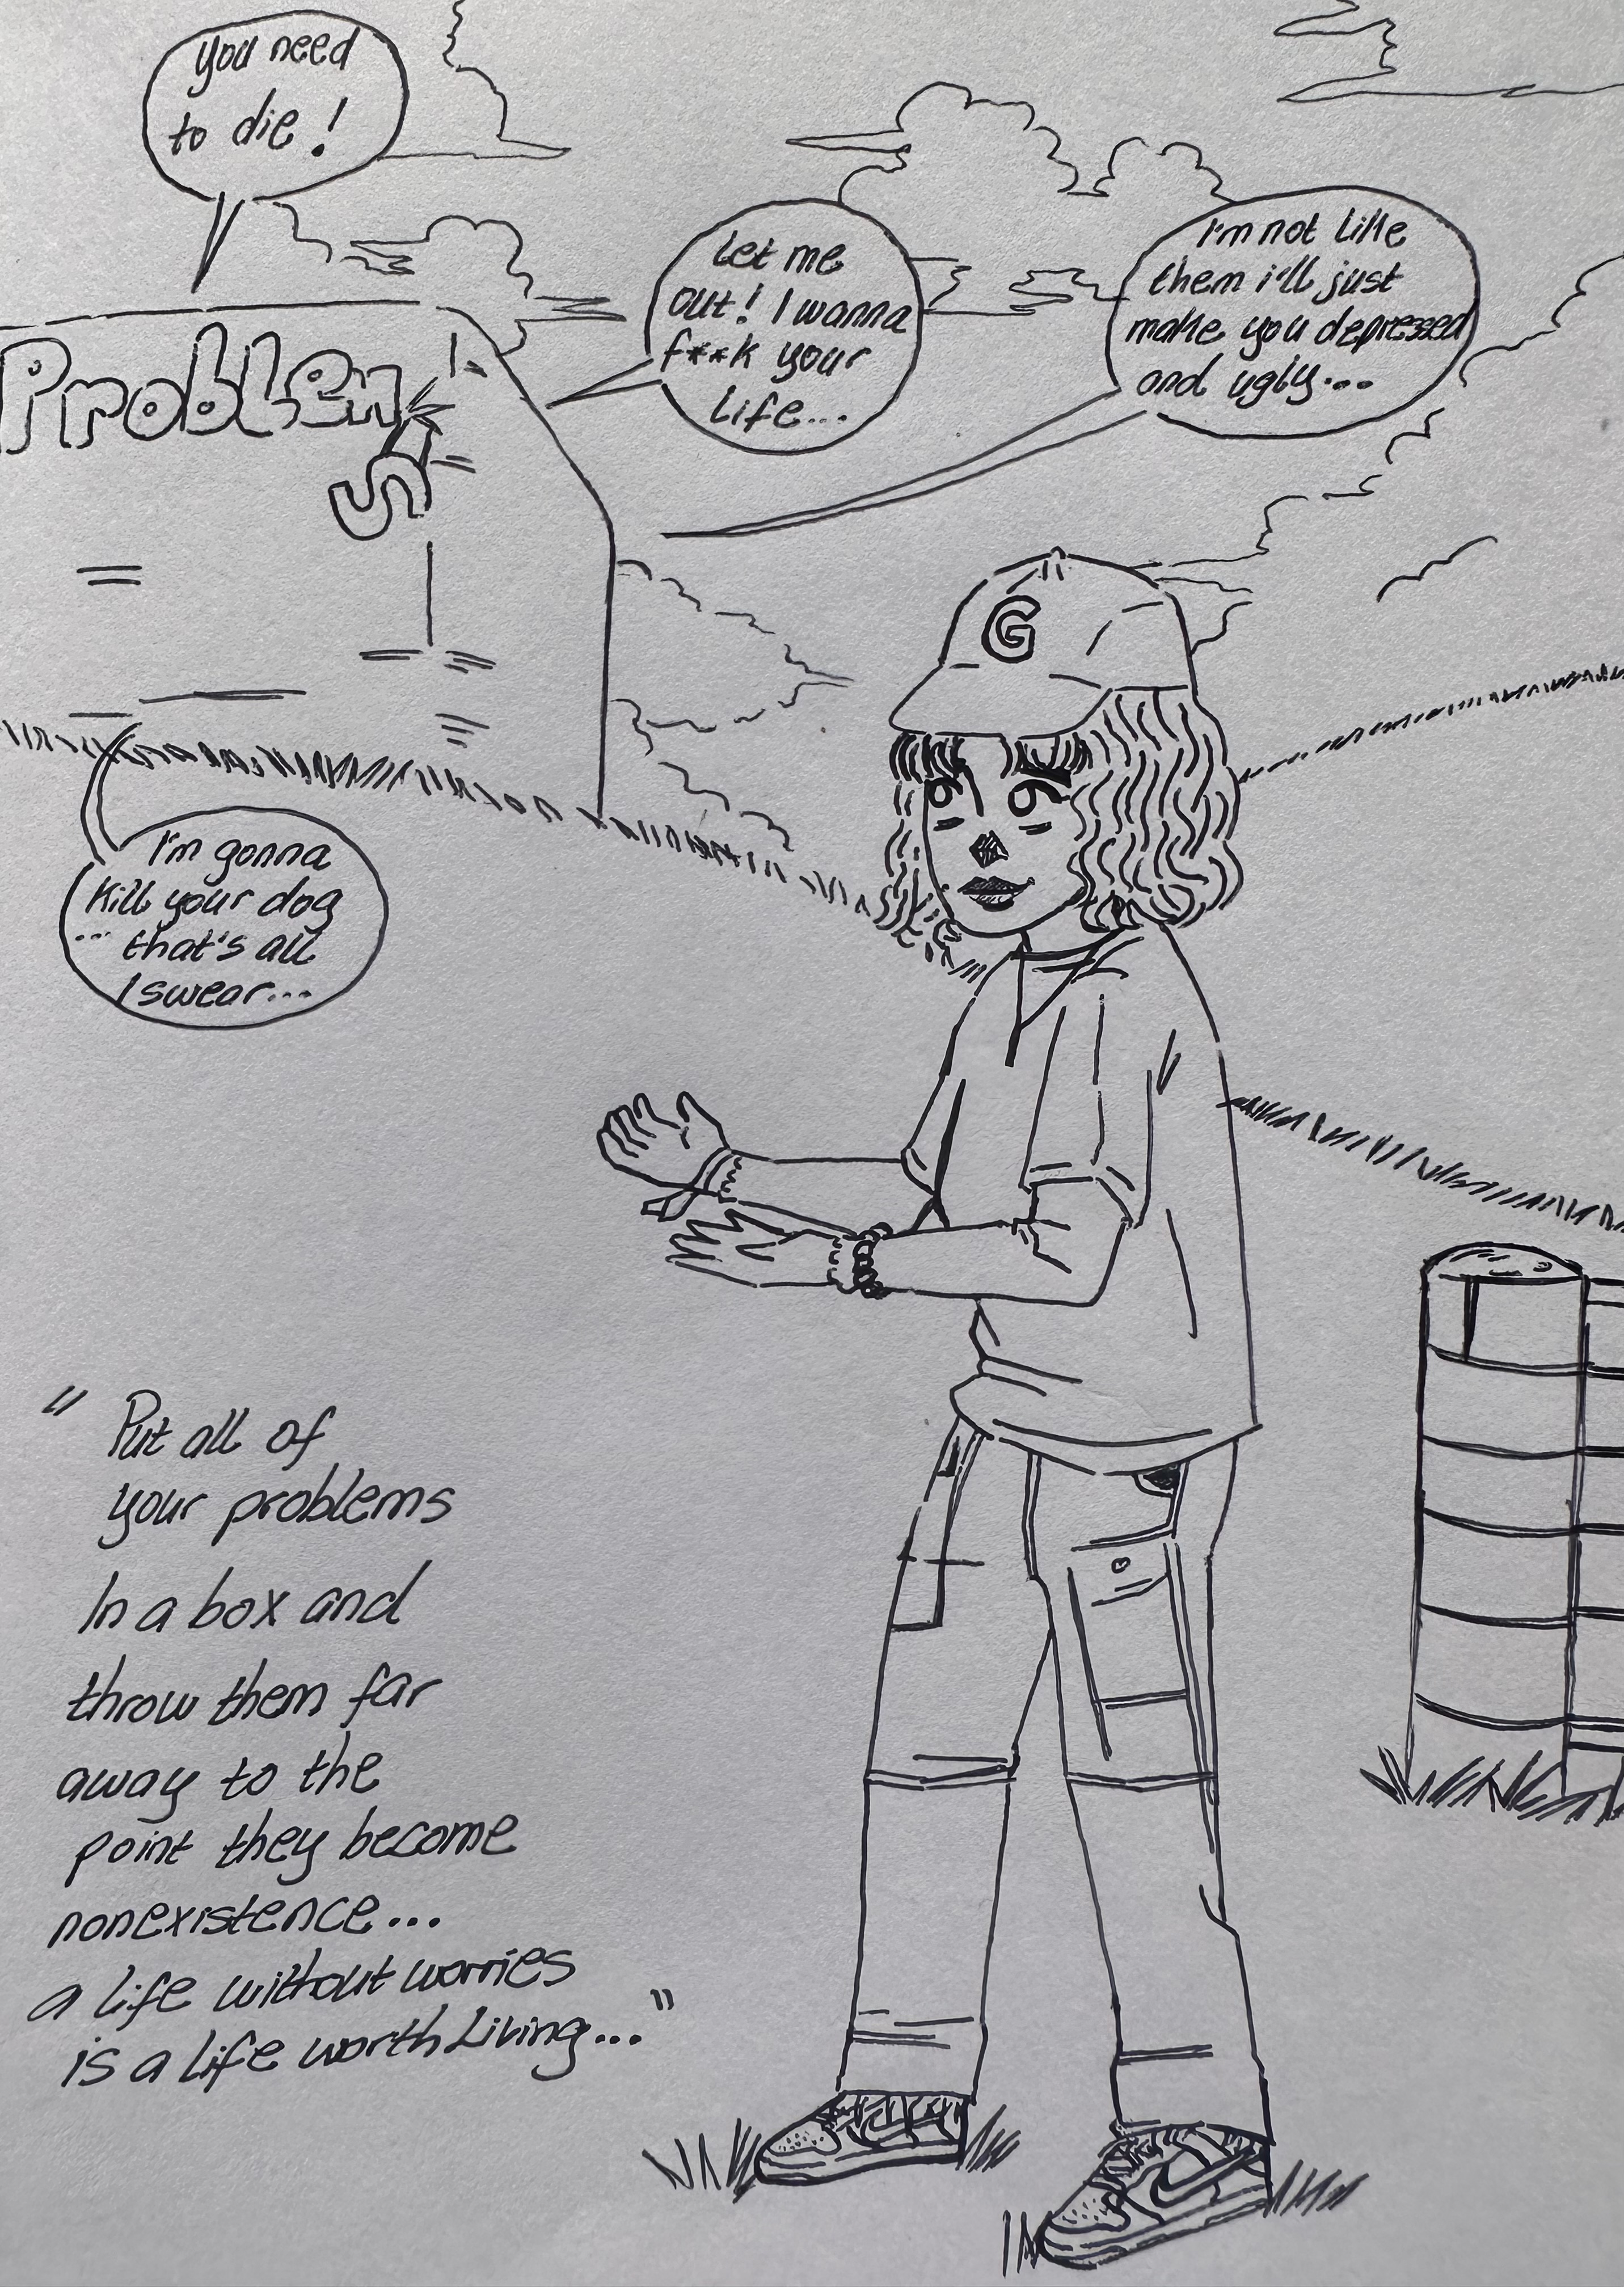 you need
to die!
Let me
out! I wanna
f**k your
Life...
I'm not like
them i'll just
make you depressed
and ugly...
Problem
S
G
I'm gonna
kill your dog
... that's all
I swear...
" Put all of
your problems
In a box and
throw them far
away to the
point they become
nonexistence...
a life without worries
is a life worth Living..."